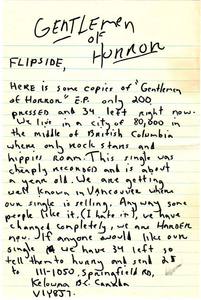 GENTLEMEN
OF
HORROR
FLIPSIDE,
HERE is some copies of "Gentlemen
of Horror" E.P. only 200
pressed and 34 left right now.
We live in a city of 80,000 in
the middle of British Columbia
where only rock stars and
hippies roam. This single was
cheaply recorded and is about
a year old. We are getting
well known in Vancouver where
our single is selling. Anyway some
people like it. (I hate it), we have
changed completely, we are HARDER
now. If anyone would like our
single we have 34 left so
tell them to hurry and send 2$
to 111-1050, Springfield RD,
Kelowna B.C. Canada